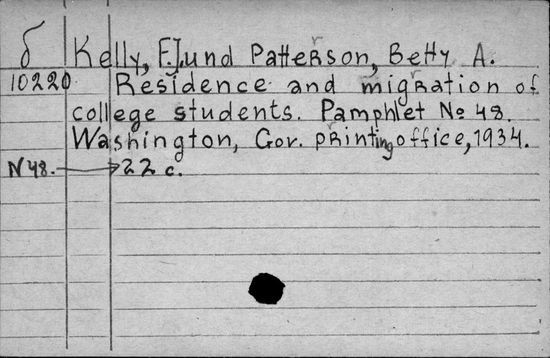 б Kelly, F.J. und Patterson, Betty A.
10220 Residence and migration of
college students. Pamphlet № 48.
Washington, Gov. printing office, 1934.
N 48. → 22 c.